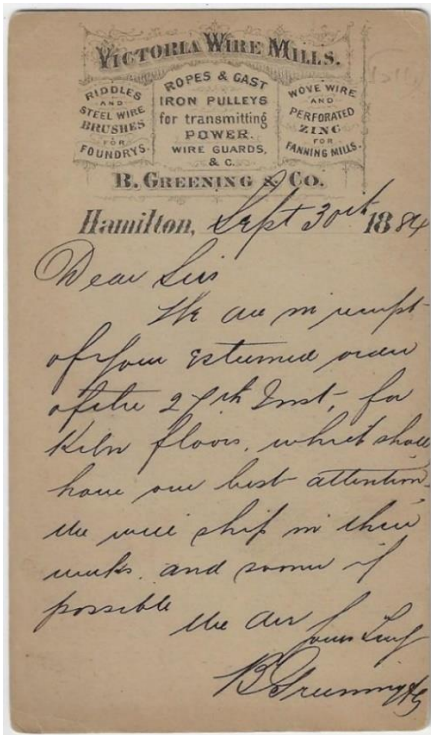 VICTORIA WIRE MILLS.
RIDDLES
AND
STEEL WIRE
BRUSHES
FOR
FOUNDRYS.
ROPES & CAST
IRON PULLEYS
for transmitting
POWER.
WIRE GUARDS,
& C.
WOVE WIRE
AND
PERFORATED
ZINC
FOR
FANNING MILLS.
B. GREENING & CO.
Hamilton, Sept 30th 1884
Dear Sir
We are in receipt
of your Esteemed order
of the 29th Inst, for
Kiln floors, which shall
have our best attention.
We will ship in three
weeks and sooner if
possible
We are
Yours Truly
B Greening & Co